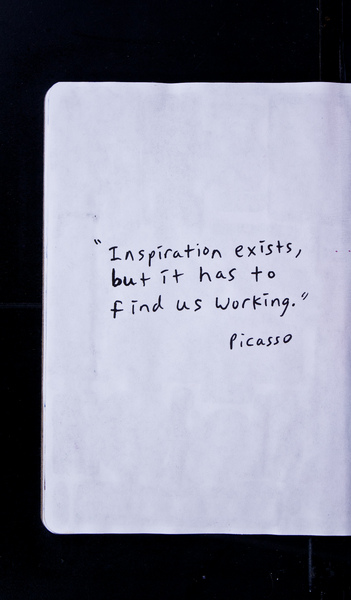 "Inspiration exists,
but it has to
find us working."
Picasso